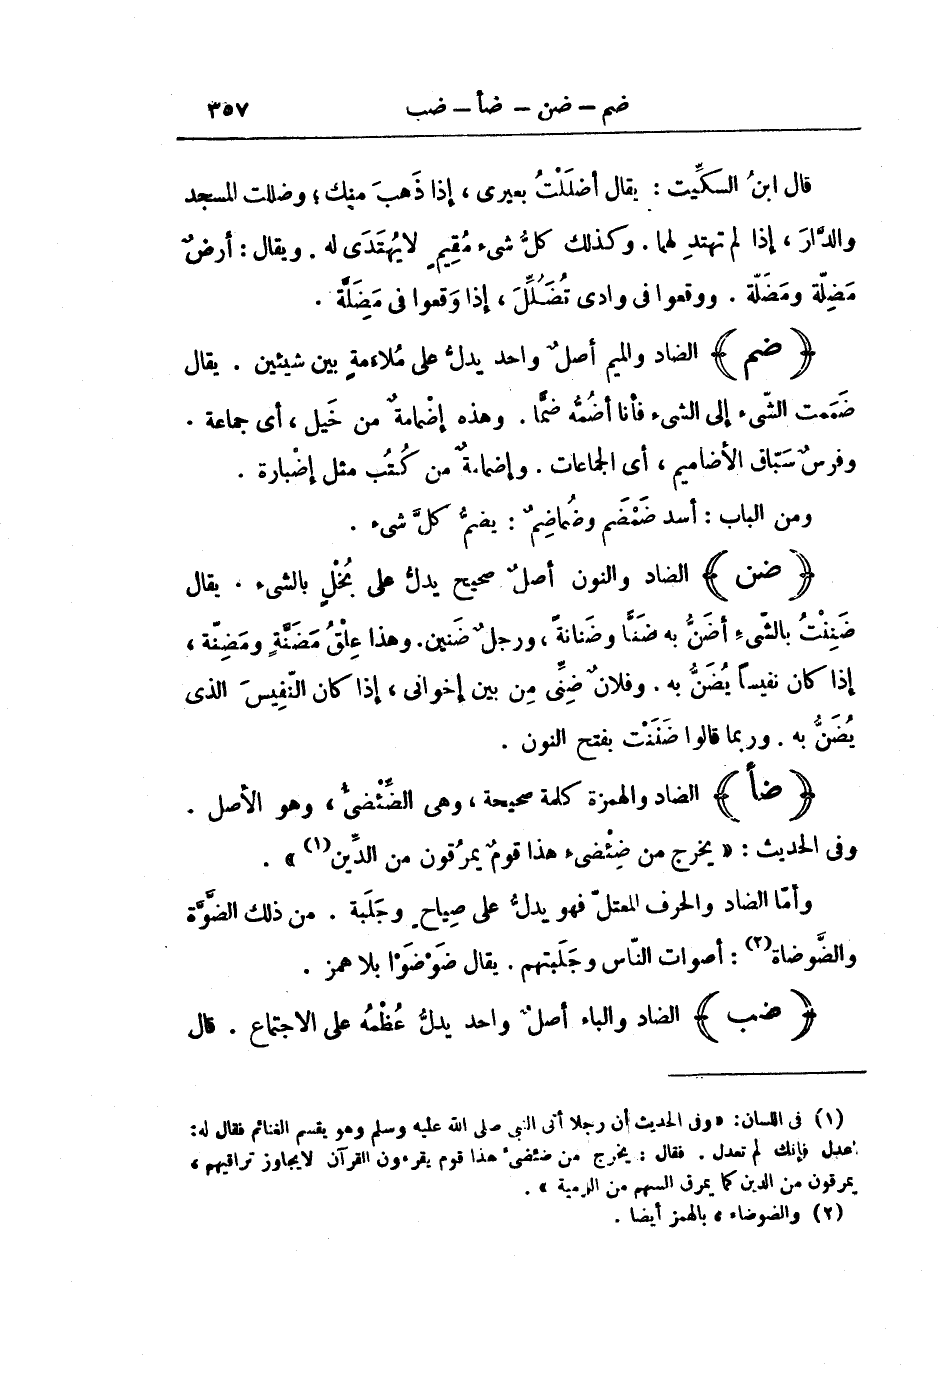 ضم – ضن – ضأ – ضب ٣٥٧
قال ابنُ السكِّيت : يقال أضلَلْتُ بعيرى ، إذا ذَهبَ منك ؛ وضللت المسجد
والدَّارَ ، إذا لم تهتدِ لهما . وكذلك كلُّ شىء مُقِيمٍ لايُهتَدَى له . ويقال : أرضٌ
مَضِلّة ومَضَلّة . ووقعوا فى وادى تُضُلِّلَ ، إذا وَقعوا فى مَضِلَّة .
﴿ ضم ﴾ الضاد والميم أصلٌ واحد يدلُّ على مُلاءمةٍ بين شيئين . يقال
ضَمَمت الشَّىء إلى الشىء فأنا أضُمُّه ضمًّا . وهذه إضْمامةٌ من خَيل ، أى جماعة .
وفرسٌ سَبّاق الأضاميم ، أى الجماعات . وإضمامةٌ من كُتُب مثل إضْبارة .
ومن الباب : أسد ضَمْضَم وضُماضِمٌ : يضمُّ كلَّ شىء .
﴿ ضن ﴾ الضاد والنون أصلٌ صحيح يدلُّ على بُخْلٍ بالشىء . يقال
ضَنِنْتُ بالشَّىءِ أضَنُّ به ضَنًّا وضَنانةً ، ورجلٌ ضَنين. وهذا عِلْقُ مَضَنَّةٍ ومَضِنّة ،
إذا كان نفيساً يُضَنُّ به . وفلانٌ ضِنِّى مِن بين إخوانى ، إذا كان النّفِيسَ الذى
يُضَنُّ به . وربما قالوا ضَنَنْت بفتح النون .
﴿ ضأ ﴾ الضاد والهمزة كلمة صحيحة ، وهى الضِّئْضئُ ، وهو الأصل .
وفى الحديث : « يخرج من ضِئْضىء هذا قومٌ يمرُقون من الدِّين(١) » .
وأمّا الضاد والحرف المعتلّ فهو يدلُّ على صِياحٍ وجَلَبة . من ذلك الضَّوَّة
والضَّوضاة(٢) : أصوات النّاس وجَلَبتهم . يقال ضَوْضَوْا بلا همز .
﴿ ضب ﴾ الضاد والباء أصلٌ واحد يدلُّ عُظْمُه على الاجتماع . قال
(١) فى اللسان : «وفى الحديث أن رجلا أتى النبى صلى الله عليه وسلم وهو يقسم الغنائم فقال له:
اعدل فإنك لم تعدل . فقال : يخرج من ضئضئ هذا قوم يقرءون القرآن لايجاوز تراقيهم ،
يمرقون من الدين كما يمرق السهم من الرمية » .
(٢) والضوضاء ، بالهمز أيضا .